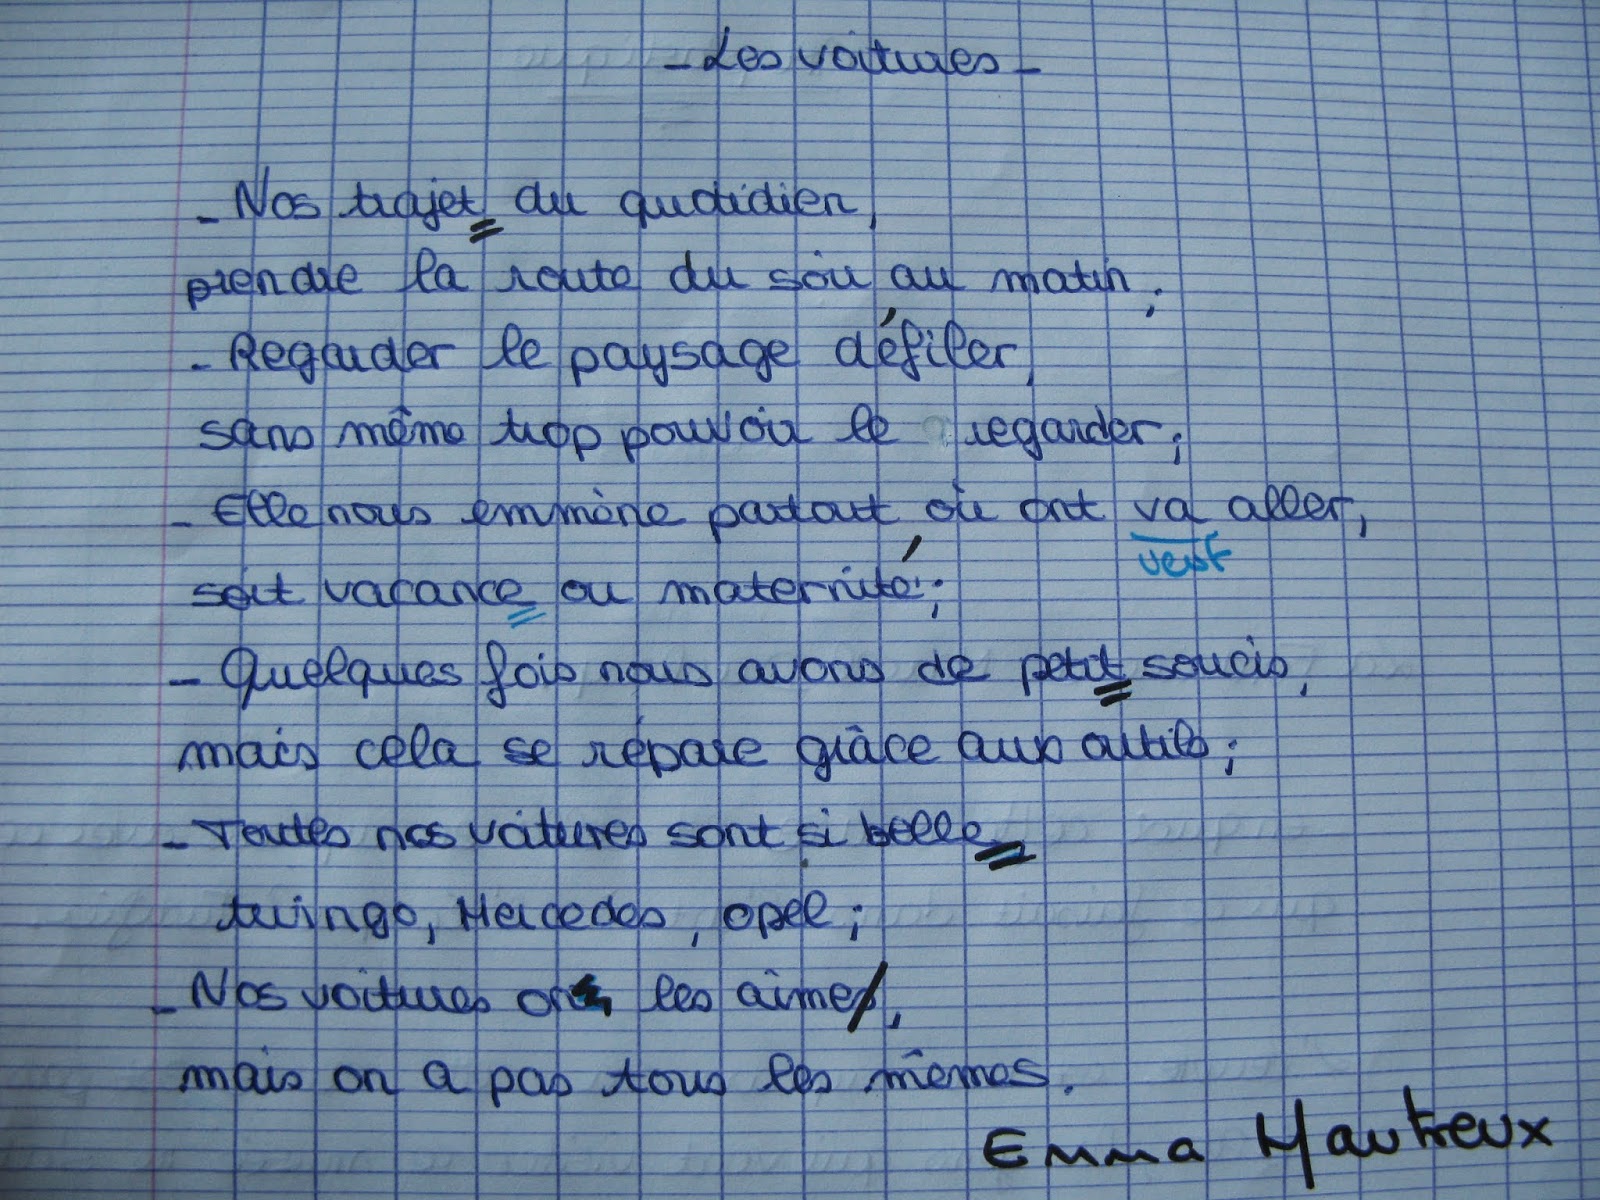 - Les voitures -
- Nos trajet du quotidien,
prendre la route du soir au matin ;
- Regarder le paysage défiler,
sans même trop pouvoir le regarder ;
- Elle nous emmène partout où ont va aller,
veut
soit vacance ou maternité ;
- Quelques fois nous avons de petit soucis,
mais cela se répare grâce aux outils ;
- Toutes nos voitures sont si belle
twingo, Mercedes, opel ;
- Nos voitures on les aimes,
mais on a pas tous les mêmes.
Emma Hautreux